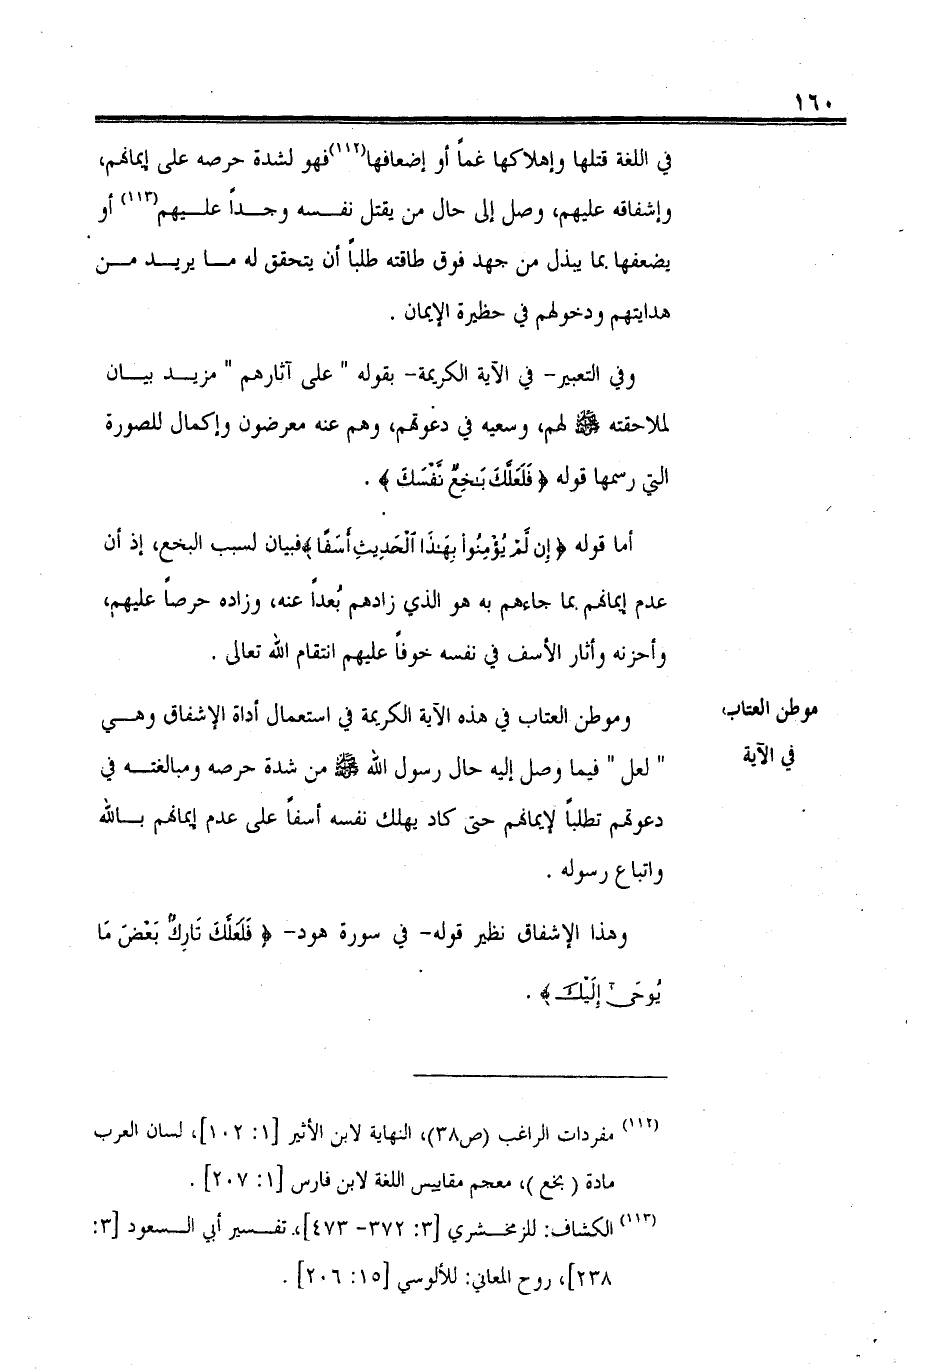 ١٦٠
في اللغة قتلها وإهلاكها غماً أو إضعافها(١١٢)فهو لشدة حرصه على إيمانهم،
وإشفاقه عليهم، وصل إلى حال من يقتل نفسه وجداً عليهم(١١٣) أو
يضعفها بما يبذل من جهد فوق طاقته طلباً أن يتحقق له ما يريد من
هدايتهم ودخولهم في حظيرة الإيمان .
وفي التعبير- في الآية الكريمة- بقوله " على آثارهم " مزيد بيان
لملاحقته ﷺ لهم، وسعيه في دعوتهم، وهم عنه معرضون وإكمال للصورة
التي رسمها قوله ﴿ فَلَعَلَّكَ بَـٰخِعٌ نَّفْسَكَ ﴾ .
أما قوله ﴿ إِن لَّمْ يُؤْمِنُوا۟ بِهَـٰذَا ٱلْحَدِيثِ أَسَفًا ﴾فبيان لسبب البخع، إذ أن
عدم إيمانهم بما جاءهم به هو الذي زادهم بُعداً عنه، وزاده حرصاً عليهم،
وأحزنه وأثار الأسف في نفسه خوفاً عليهم انتقام الله تعالى .
موطن العتاب،
في الآية
وموطن العتاب في هذه الآية الكريمة في استعمال أداة الإشفاق وهي
" لعل " فيما وصل إليه حال رسول الله ﷺ من شدة حرصه ومبالغته في
دعوتهم تطلباً لإيمانهم حتى كاد يهلك نفسه أسفاً على عدم إيمانهم بالله
واتباع رسوله .
وهذا الإشفاق نظير قوله- في سورة هود- ﴿ فَلَعَلَّكَ تَارِكٌ بَعْضَ مَا
يُوحَىٰٓ إِلَيْكَ ﴾ .
(١١٢) مفردات الراغب (ص٣٨)، النهاية لابن الأثير [١: ١٠٢]، لسان العرب
مادة ( بخع )، معجم مقاييس اللغة لابن فارس [١: ٢٠٧] .
(١١٣) الكشاف: للزمخشري [٣: ٣٧٢- ٤٧٣]، تفسير أبي السعود [٣:
٢٣٨]، روح المعاني: للألوسي [١٥: ٢٠٦] .